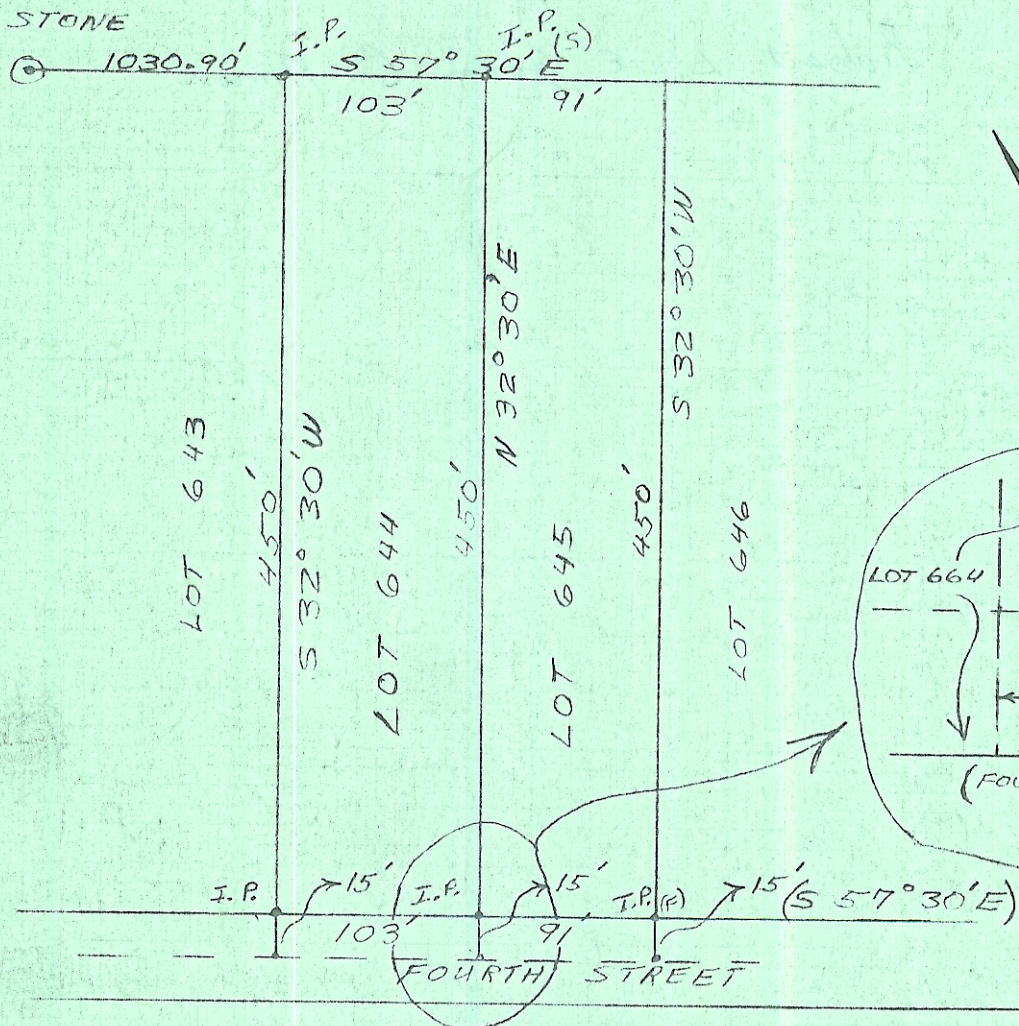 STONE
1030.90'
I.P.
S 57° 30' E
I.P. (S)
103'
91'
LOT 643
450'
S 32° 30' W
LOT 644
450'
N 32° 30' E
LOT 645
450'
S 32° 30' W
LOT 646
LOT 664
(FOU
I.P.
15'
I.P.
15'
I.P. (F)
15'
(S 57° 30' E)
103'
91'
FOURTH STREET